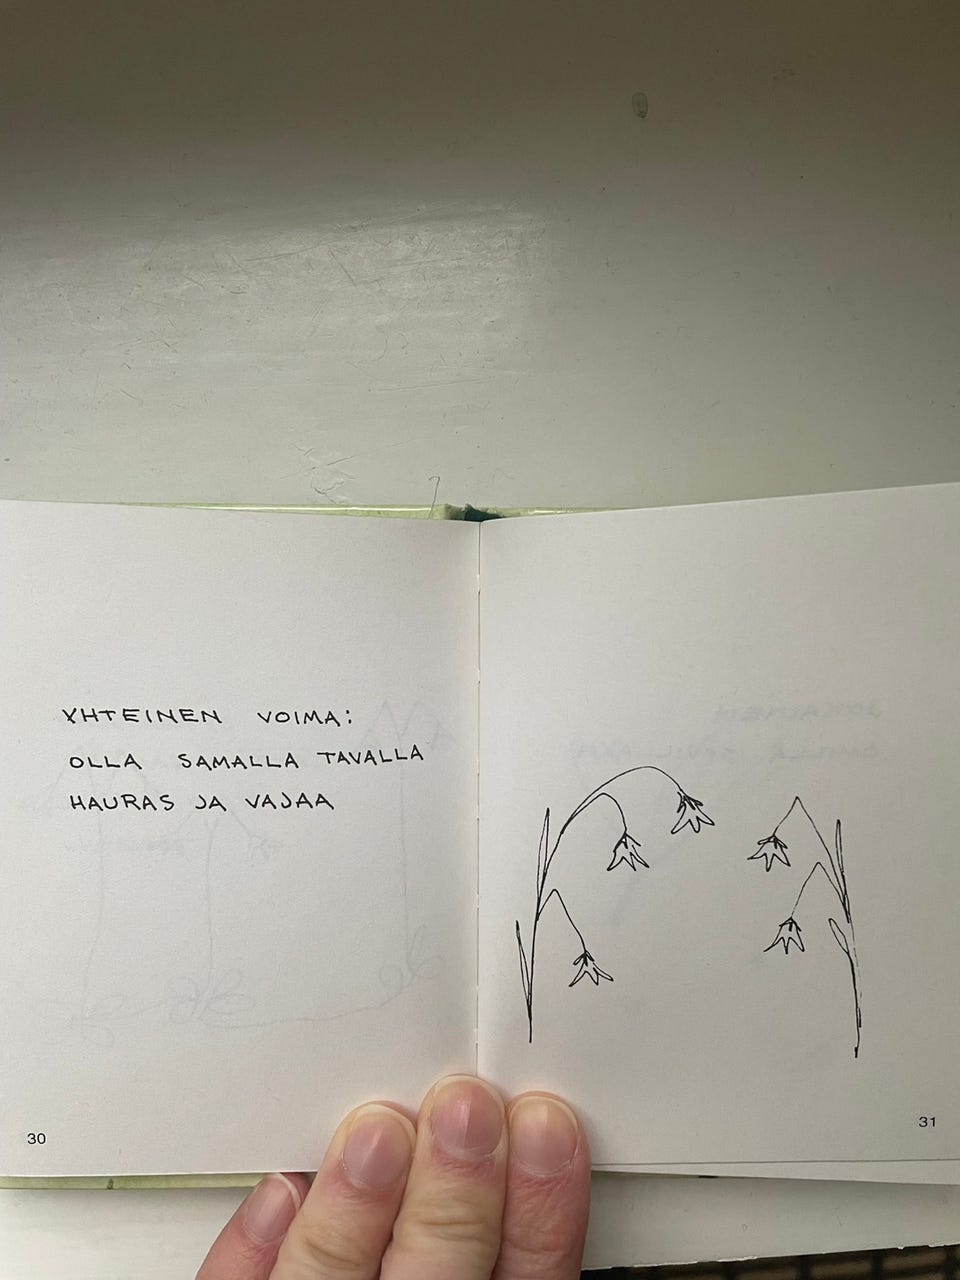 YHTEINEN VOIMA:
OLLA SAMALLA TAVALLA
HAURAS JA VAJAA
30
31